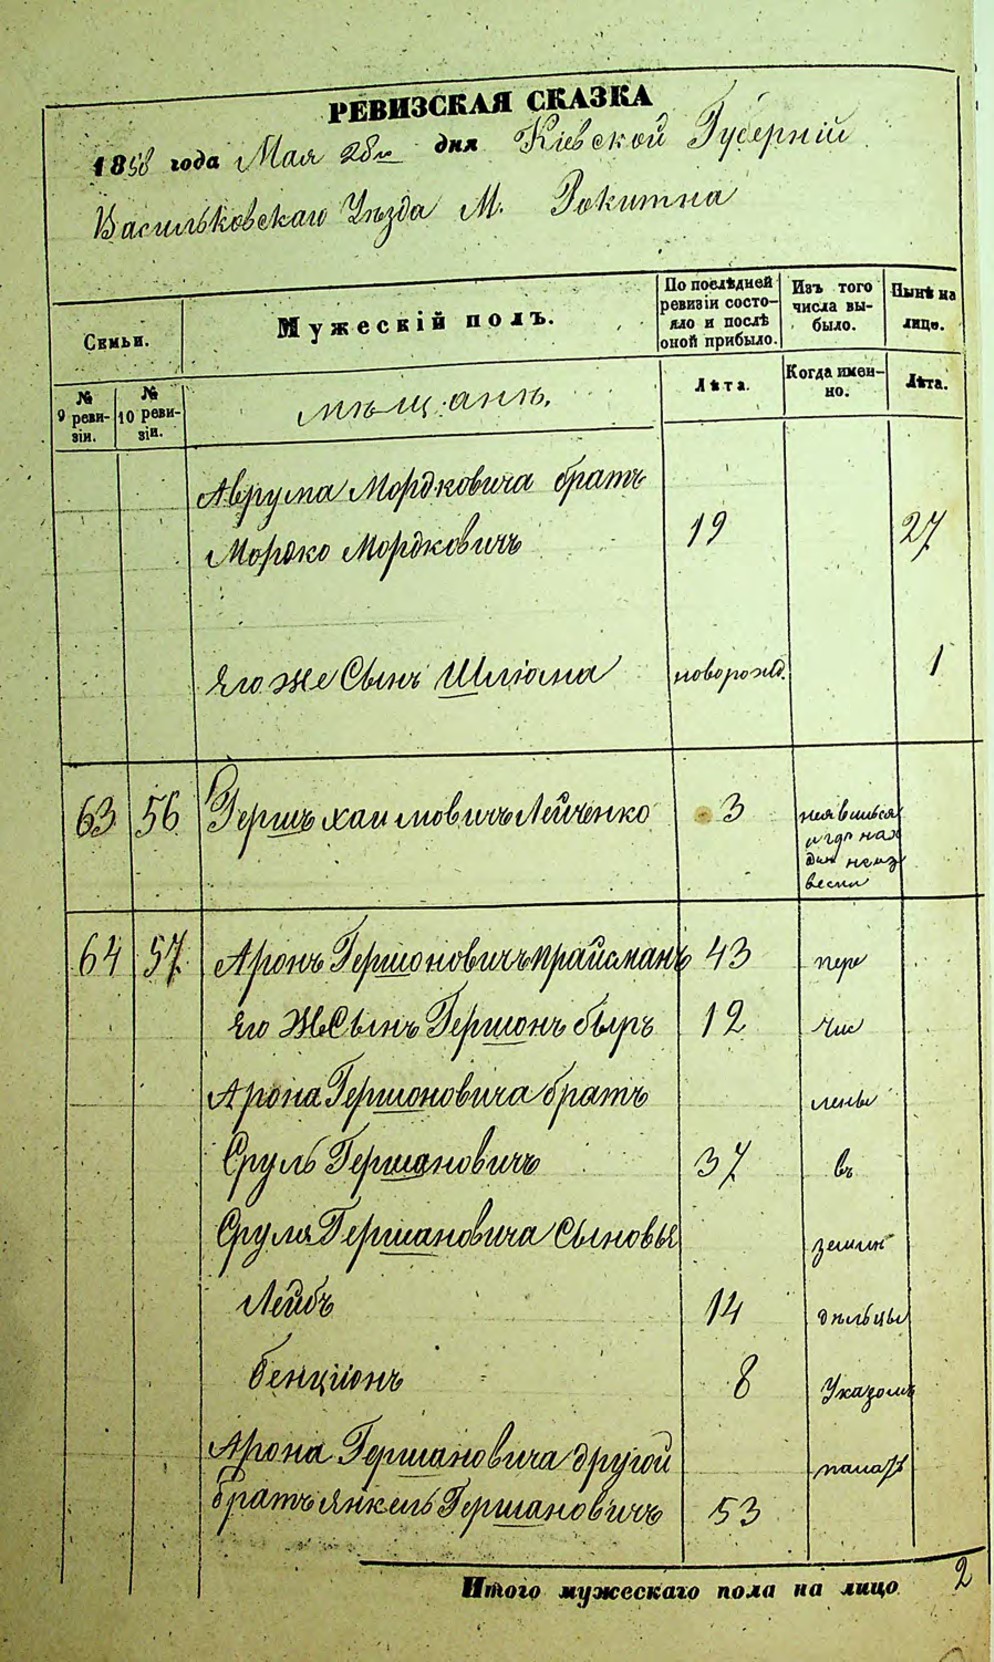 РЕВИЗСКАЯ СКАЗКА
1858 года Мая 28го дня Кіевской Губерніи
Васильковскаго Уѣзда М. Рокитна
Семьи.
Мужескій полъ.
По послѣдней
ревизіи состо-
яло и послѣ
оной прибыло.
Изъ того
числа вы-
было.
Нынѣ на
лицо.
№
9 реви-
зіи.
№
10 реви-
зіи.
мѣщанѣ.
Лѣта.
Когда имен-
но.
Лѣта.
Аврума Мордковича братъ
Мордко Мордковичъ 19 27
Его же Сынъ Шлюма новорожд. 1
63 56 Гершъ Хаимовичъ Лейченко 3 неявившься
и гдѣ нах
дит неиз
вестн
64 57 Аронъ Гершоновичъ Прайсманъ 43 пере
Его же Сынъ Гершонъ быръ 12 чис
Арона Гершоновича братъ лены
Сруль Гершановичъ 37 въ
Сруля Гершановича Сыновья землѣ
Лейбъ 14 дѣльцы
Бенціонъ 8 Указомъ
Арона Гершановича другой палаты
братъ Янкель Гершановичъ 53
Итого мужескаго пола на лицо 2